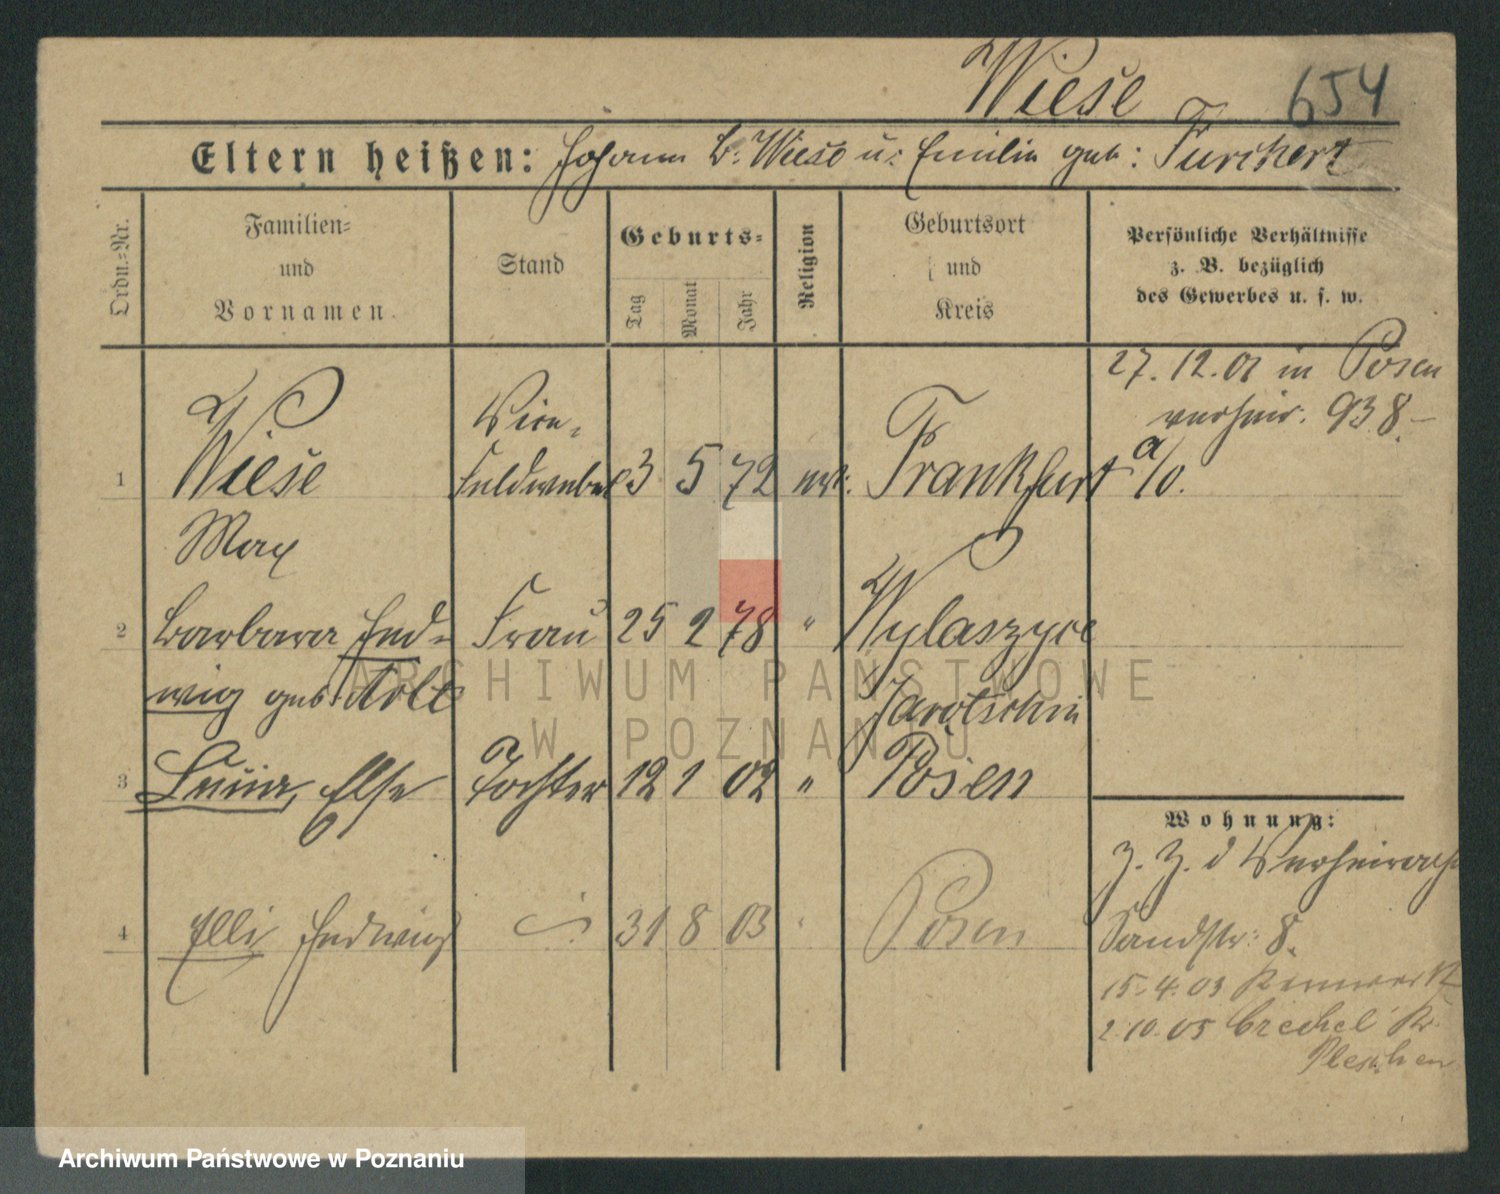 Wiese 654
Eltern heißen: Johann B. Wiese u. Emilie geb: Furchert
Ordn.-Nr.
Familien-
und
Vornamen.
Stand
Geburts-
Tag
Monat
Jahr
Religion
Geburtsort
und
Kreis
Persönliche Verhältnisse
z. B. bezüglich
des Gewerbes u. s. w.
27. 12. 01 in Posen
verheir. 938.
1 Wiese
Max
Vice-
Feldwebel 3 5 72 ev. Frankfurt a/O.
2 Barbara Hed-
wig geb. Frau 25 2 78 " Wylaszyce
Jarotschin
3 Luise, Else Tochter 12 1 02 " Posen
4 Elli Hedwig 31 8 03 Posen
Wohnung:
Z. Z. d Verheirath
Sandstr. 8.
15.4.03 Kernwerk
2.10.05 Kr.
Pleschen
ARCHIWUM PAŃSTWOWE
W POZNANIU
Archiwum Państwowe w Poznaniu